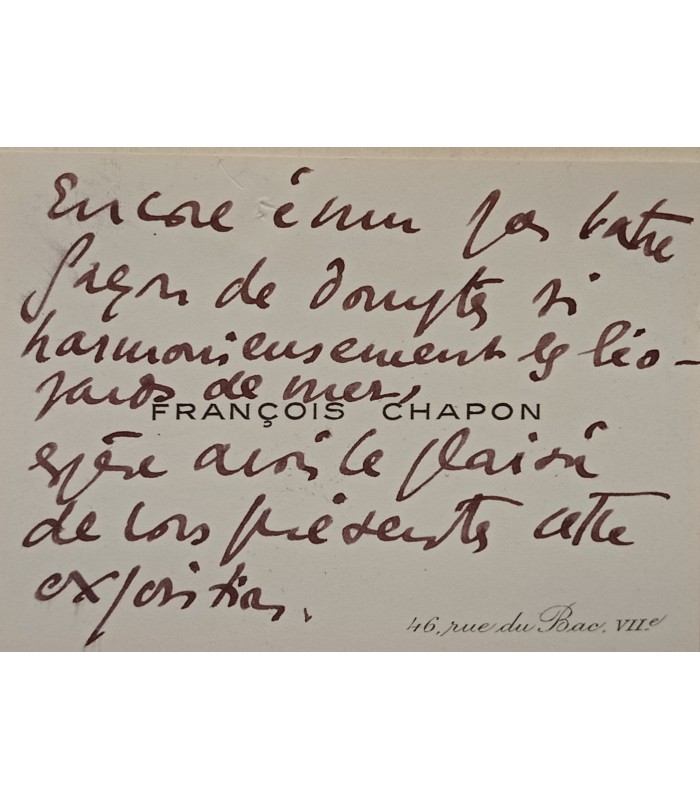 Encore ému par votre
façon de dompter si
harmonieusement les léo-
pards de mer,
FRANÇOIS CHAPON
espère avoir le plaisir
de vous présenter cette
exposition.
46, rue du Bac. VIIe